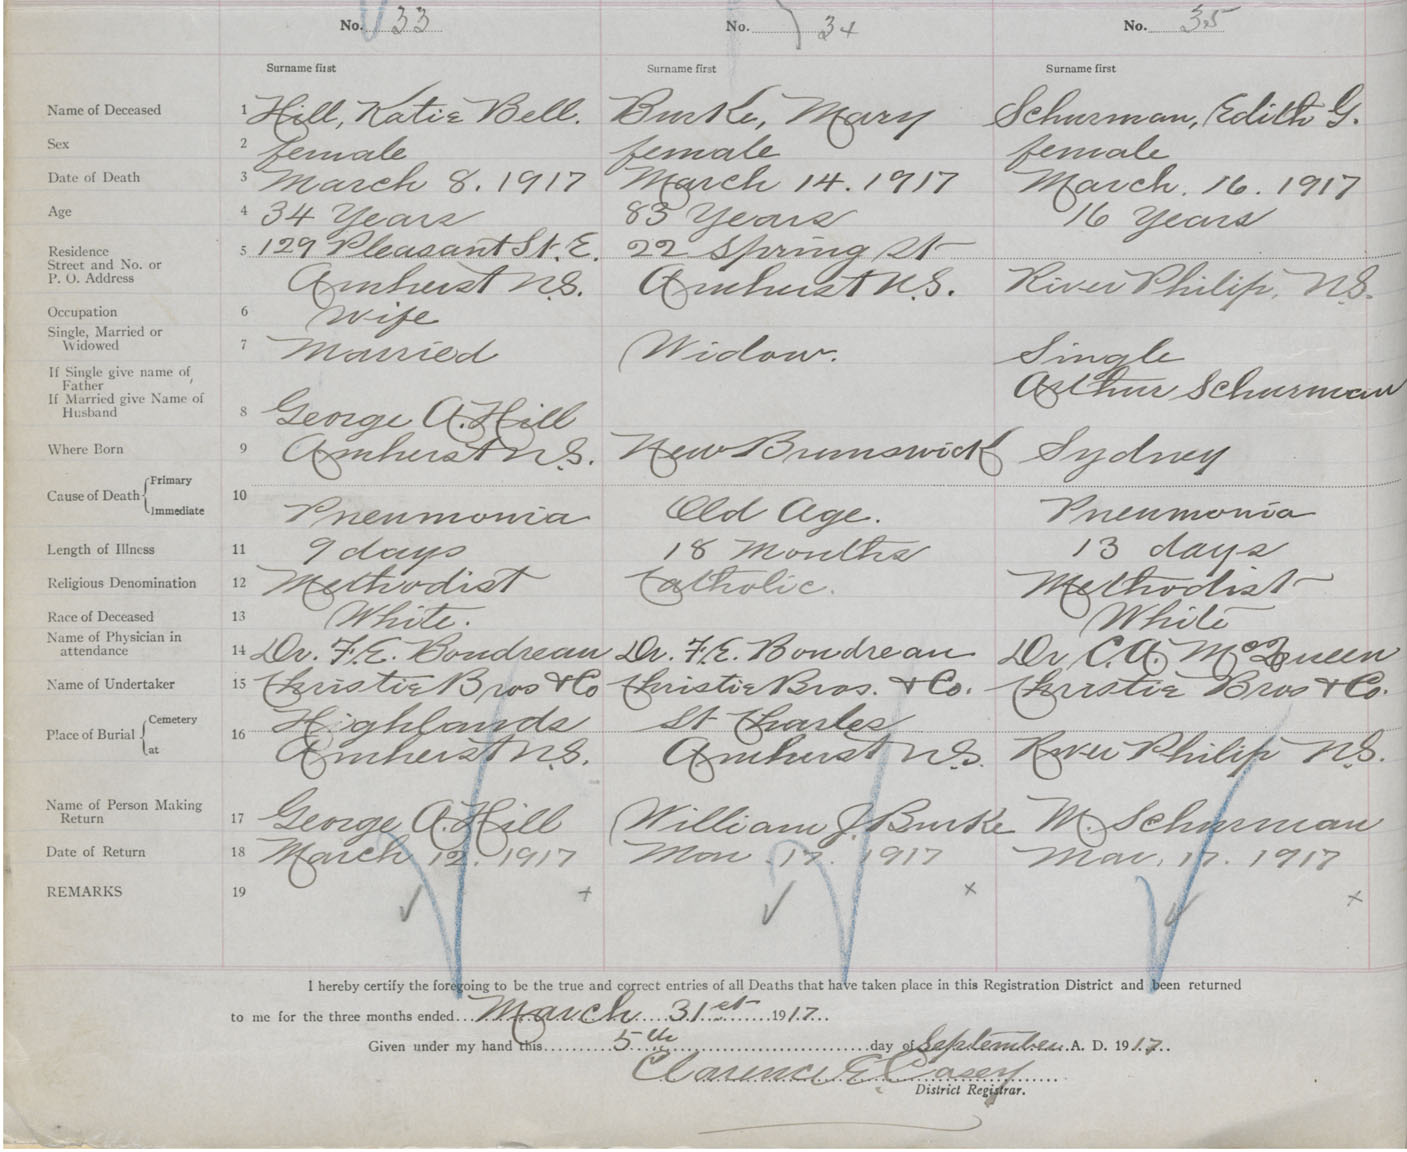 No. 33 No. 34 No. 35
Surname first Surname first Surname first
Name of Deceased 1 Hill, Katie Bell. Burke, Mary Schurman, Edith G.
Sex 2 female female female
Date of Death 3 March 8. 1917 March 14. 1917 March. 16. 1917
Age 4 34 Years 83 Years 16 Years
Residence 5 129 Pleasant St. E. 22 Spring St
Street and No. or
P. O. Address Amherst N.S. Amherst N.S. River Philip, N.S.
Occupation 6 Wife
Single, Married or
Widowed 7 Married Widow. Single
If Single give name of
Father Arthur Schurman
If Married give Name of
Husband 8 George A. Hill
Where Born 9 Amherst N.S. New Brunswick Sydney
Cause of Death Primary 10
Immediate Pneumonia Old Age. Pneumonia
Length of Illness 11 9 days 18 Months 13 days
Religious Denomination 12 Methodist Catholic. Methodist
Race of Deceased 13 White. White
Name of Physician in
attendance 14 Dr. F.E. Boudreau Dr. F.E. Boudreau Dr C.A. McQueen
Name of Undertaker 15 Christie Bros & Co Christie Bros. & Co. Christie Bros & Co.
Place of Burial Cemetery 16 Highlands St Charles
at Amherst N.S. Amherst N.S. River Philip N.S.
Name of Person Making
Return 17 George A. Hill William J. Burke M. Schurman
Date of Return 18 March 12. 1917 Mar. 17. 1917 Mar. 17. 1917
REMARKS 19
I hereby certify the foregoing to be the true and correct entries of all Deaths that have taken place in this Registration District and been returned
to me for the three months ended March 31st 1917
Given under my hand this 5th day of September A. D. 1917
Clarence E. Casey
District Registrar.